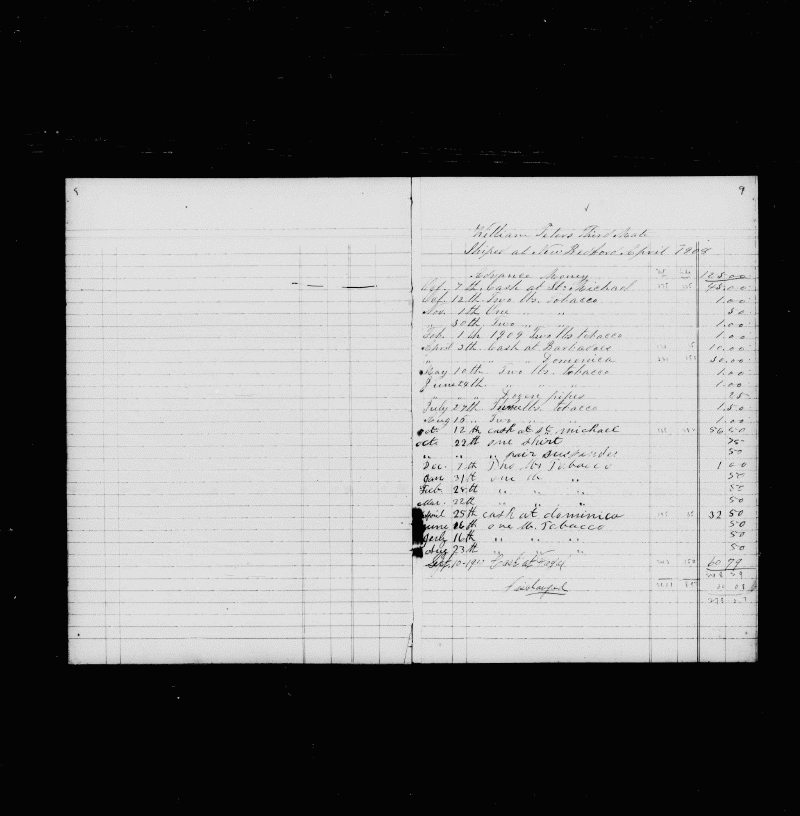 8
9
William Peters Third Mate
Shiped at New Bedford April 1908
Advance Money 125.00
Oct. 7th Cash at St. Michael 45.00
Oct. 12th Two lbs. Tobacco 1.00
Nov. 1th One „ „ 50
„ 30th Two „ 1.00
Feb. 1th 1909 Two lbs tobacco 1.00
April 3th Cash at Barbados 10.00
„ „ „ „ Domenica 30.00
May 10th Two lbs. tobacco 1.00
June 24th „ „ „ 1.00
„ „ Dozen pipes 25
July 27th lbs. tobacco 1.50
Aug 15 „ Two „ „ 1.00
oct 12th cash at st michael 56 50
octo 22th one shirt 75
„ „ „ pair suspender 50
Dec. 7th Two lbs Tobacco 1 00
Jan 31th one lb „ 50
Feb. 28th „ „ „ 50
Mar. 22th „ „ „ 50
April 25th cash at dominica 32 50
June 16th one lb. Tobacco 50
July 16th „ „ „ 50
Aug 23th „ „ „ 50
Sept. 10-1910 Cash at 60 79
Discharged